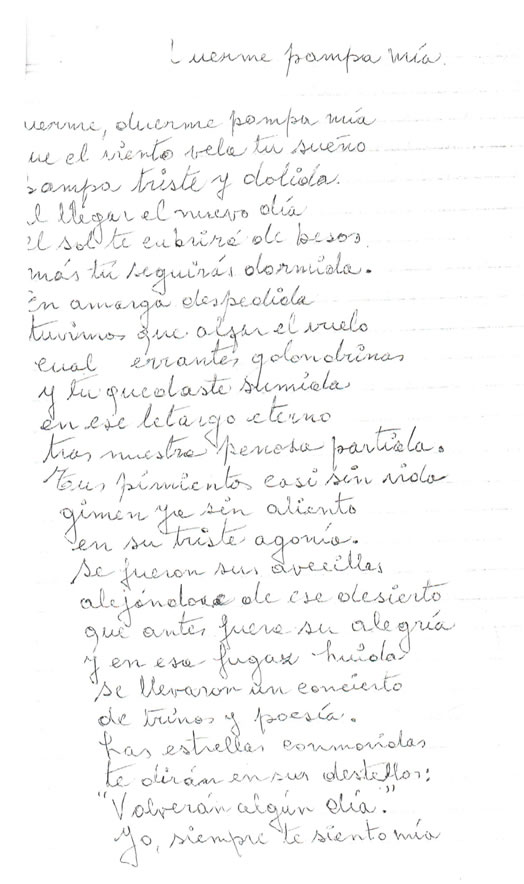 uerme pampa mía.
uerme, duerme pampa mía
ue el viento vela tu sueño
pampa triste y dolida.
l llegar el nuevo día
el sol te cubrirá de besos
más tú seguirás dormida.
En amarga despedida
tuvimos que alzar el vuelo
cual errantes golondrinas
y tu quedaste sumida
en ese letargo eterno
tras nuestra penosa partida.
Tus pimientos casi sin vida
gimen ya sin aliento
en su triste agonía.
Se fueron sus avecillas
alejándose de ese desierto
que antes fuera su alegría
y en esa fugaz huida
se llevaron un concierto
de trinos y poesía.
Las estrellas conmovidas
te dirán en sus destellos:
"Volverán algún día."
Yo, siempre te siento mía